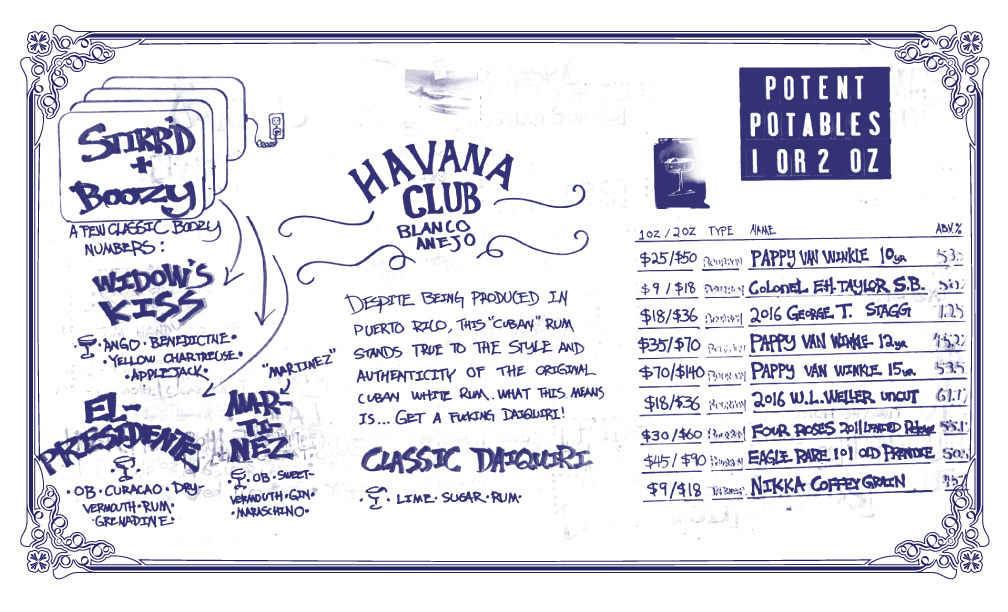 STIRR'D
+
BOOZY
A FEW CLASSIC BOOZY
NUMBERS:
WIDOW'S
KISS
• ANGO • BENEDICTINE •
• YELLOW CHARTREUSE •
• APPLEJACK •
EL-
PRESIDENTE
• OB • CURACAO • DRY-
VERMOUTH • RUM •
• GRENADINE •
"MARTINEZ"
MAR-
TI-
NEZ
• OB • SWEET-
VERMOUTH • GIN •
• MARASCHINO •
HAVANA
CLUB
BLANCO
ANEJO
DESPITE BEING PRODUCED IN
PUERTO RICO, THIS "CUBAN" RUM
STANDS TRUE TO THE STYLE AND
AUTHENTICITY OF THE ORIGINAL
CUBAN WHITE RUM. WHAT THIS MEANS
IS... GET A FUCKING DAIQUIRI!
CLASSIC DAIQUIRI
• LIME • SUGAR • RUM •
POTENT
POTABLES
1 OR 2 OZ
1OZ / 2OZ TYPE NAME ABV%
$25/$50 PAPPY VAN WINKLE 10YR
$9 / $18 COLONEL E.H. TAYLOR S.B.
$18/$36 2016 GEORGE T. STAGG
$35/$70 PAPPY VAN WINKLE 12YR
$70/$140 PAPPY VAN WINKLE 15YR
$18/$36 2016 W.L. WELLER UNCUT
$30/$60 FOUR ROSES 2011 LIMITED Release
$45/$90 EAGLE RARE 101 OLD PRENTICE
$9/$18 NIKKA COFFEY GRAIN